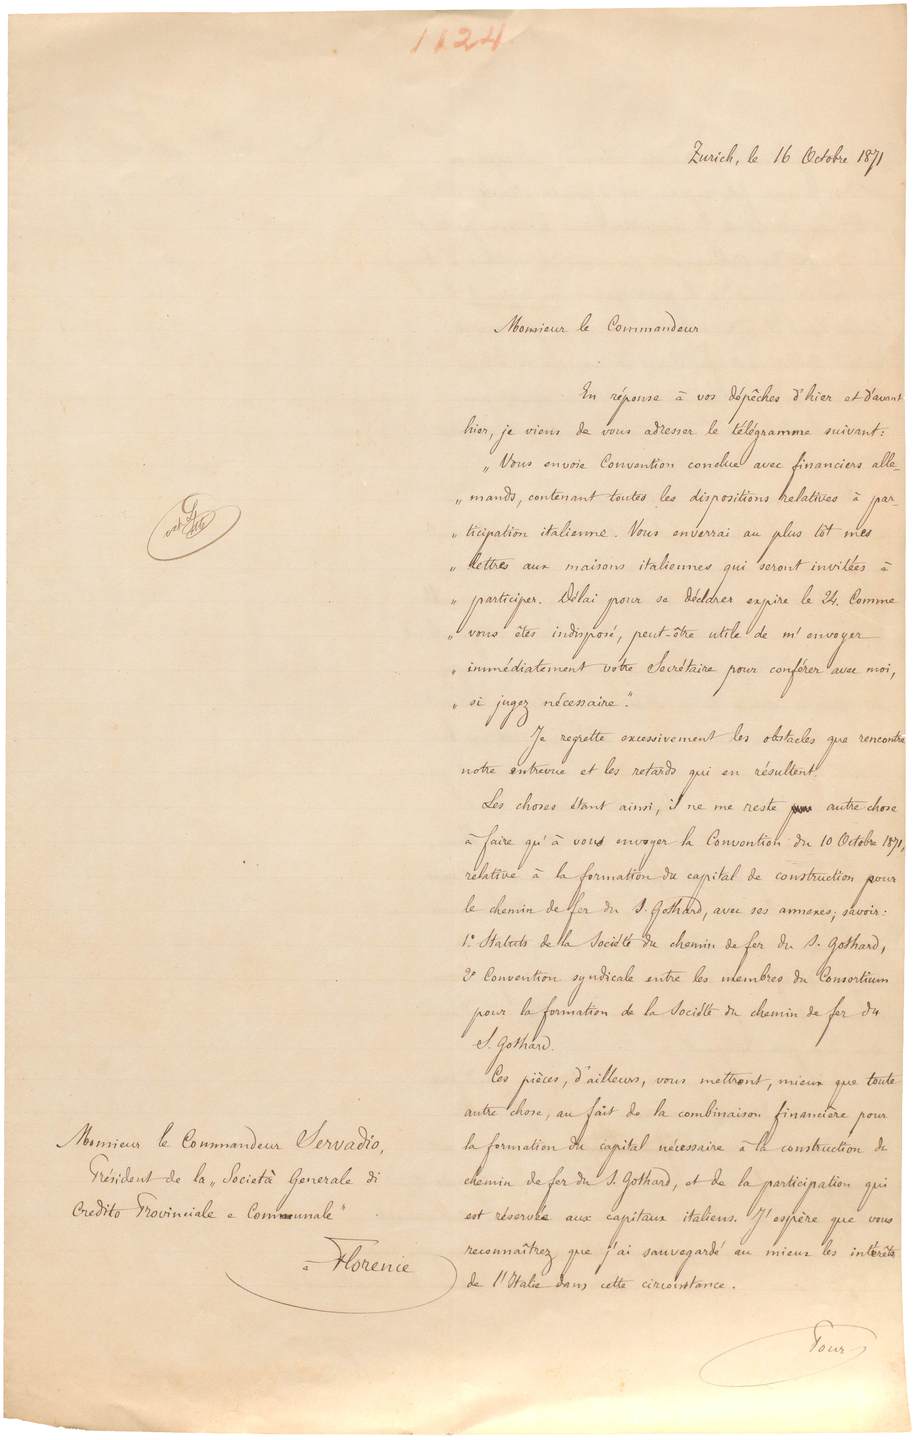 1124
Zurich, le 16 Octobre 1871
Monsieur le Commandeur
En réponse à vos dépêches d'hier et d'avant
hier, je viens de vous adresser le télégramme suivant:
„ Vous envoie Convention conclue avec financiers alle-
„ mands, contenant toutes les dispositions relatives à par-
„ ticipation italienne. Vous enverrai au plus tôt mes
„ lettres aux maisons italiennes qui seront invitées à
„ participer. Délai pour se déclarer expire le 24. Comme
„ vous êtes indisposé, peut-être utile de m'envoyer
„ immédiatement votre Secrétaire pour conférer avec moi,
„ si jugez nécessaire".
Je regrette excessivement les obstacles que rencontre
notre entrevue et les retards qui en résultent.
Les choses étant ainsi, il ne me reste autre chose
à faire qu'à vous envoyer la Convention du 10 Octobre 1871,
relative à la formation du capital de construction pour
le chemin de fer du S. Gothard, avec ses annexes; savoir:
1º Statuts de la Société du chemin de fer du S. Gothard,
2º Convention syndicale entre les membres du Consortium
pour la formation de la Société du chemin de fer du
S. Gothard.
Ces pièces, d'ailleurs, vous mettront, mieux que toute
autre chose, au fait de la combinaison financière pour
la formation du capital nécessaire à la construction du
chemin de fer du S. Gothard, et de la participation qui
est réservée aux capitaux italiens. J'espère que vous
reconnaîtrez que j'ai sauvegardé au mieux les intérêts
de l'Italie dans cette circonstance.
Pour
Monsieur le Commandeur Servadio,
Président de la „Società Generale di
Credito Provinciale e Communale"
a Florence